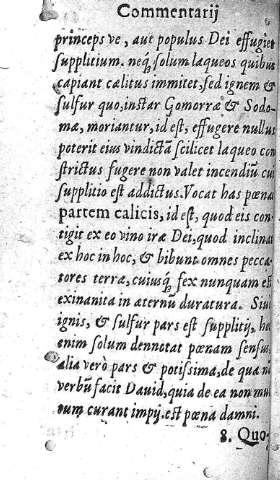 Commentarij
princeps ve, aut populus Dei effugiet
supplitium. neq; solum laqueos quibus
capiant cælitus immitet, sed ignem &
sulfur quo, instar Gomorræ & Sodo-
mæ, moriantur, id est, effugere nullus
poterit eius vindictã scilicet laqueo con
strictus fugere non valet incendiũ cui
supplitio est addictus. Vocat has pœnas
partem calicis, id est, quod eis con
tigit ex eo vino iræ Dei, quod inclinat
ex hoc in hoc, & bibunt omnes pecca-
tores terræ, cuiusq; fex nunquam est
exinanita in æternũ duratura. Siue
ignis, & sulfur pars est supplitij, hæc
enim solum dennotat pœnam sensus,
alia verò pars & potissima, de qua non
verbũ facit Dauid, quia de ea non mul
tum curant impij. est pœna damni.
8. Quo-